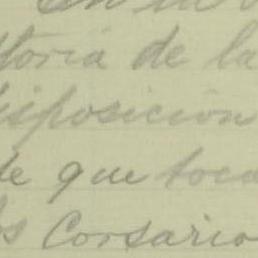 en la
toria de la
disposicion
de que toca
los Corsario